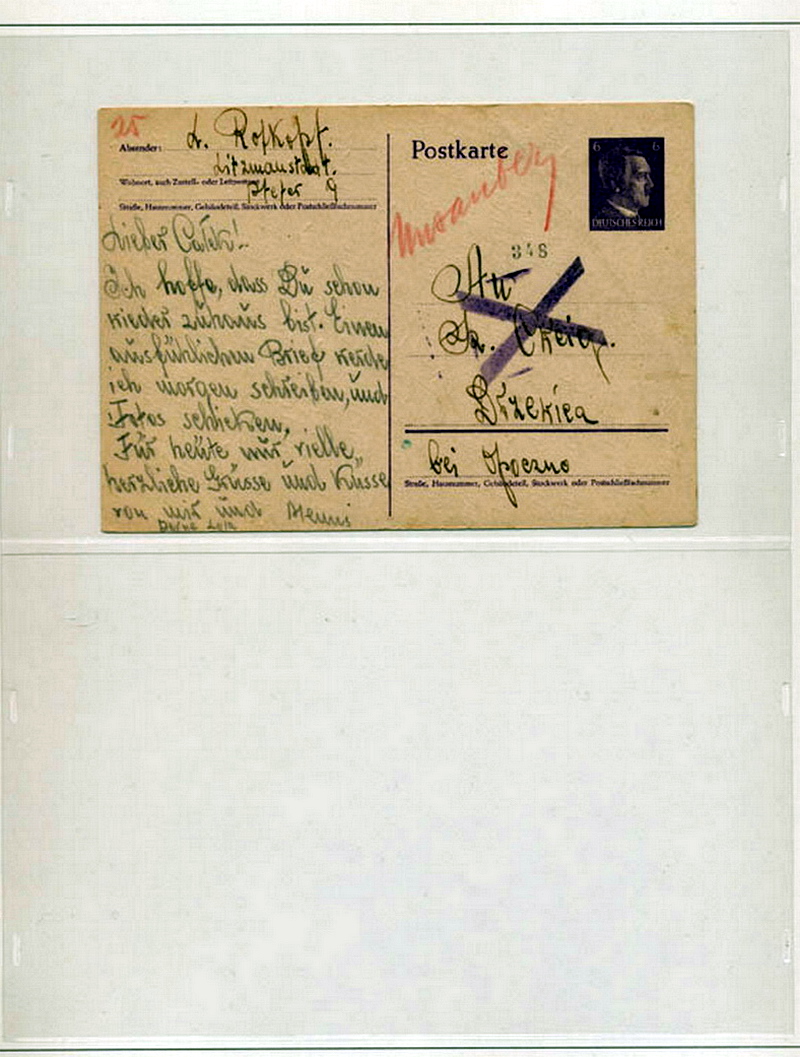 25
L. Rotkopf.
Absender:
Litzmanstadt.
Wohnort, auch Zustell- oder Leitpostamt
Pfefer 9
Straße, Hausnummer, Gebäudeteil, Stockwerk oder Postschließfachnummer
Lieber Calek!
Ich hoffe, dass Du schon
wieder zuhaus bist. Einen
ausführlichen Brief werde
ich morgen schreiben, und
Fotos schicken.
Für heute nur vielle
herzliche Grüsse und Küsse
von mir und Henni
Postkarte
6 6
DEUTSCHES REICH
348
An
bei Opoczno
Straße, Hausnummer, Gebäudeteil, Stockwerk oder Postschließfachnummer